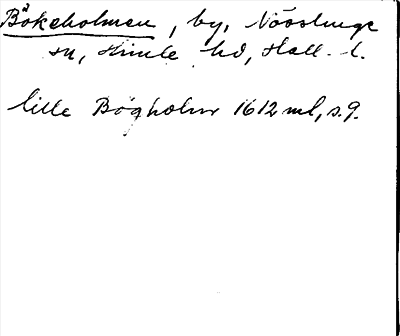 Bökeholmen, by, Nösslinge
sn, Himle hd, Hall. l.
lille Bøgholm 1612 ml, s. 9.